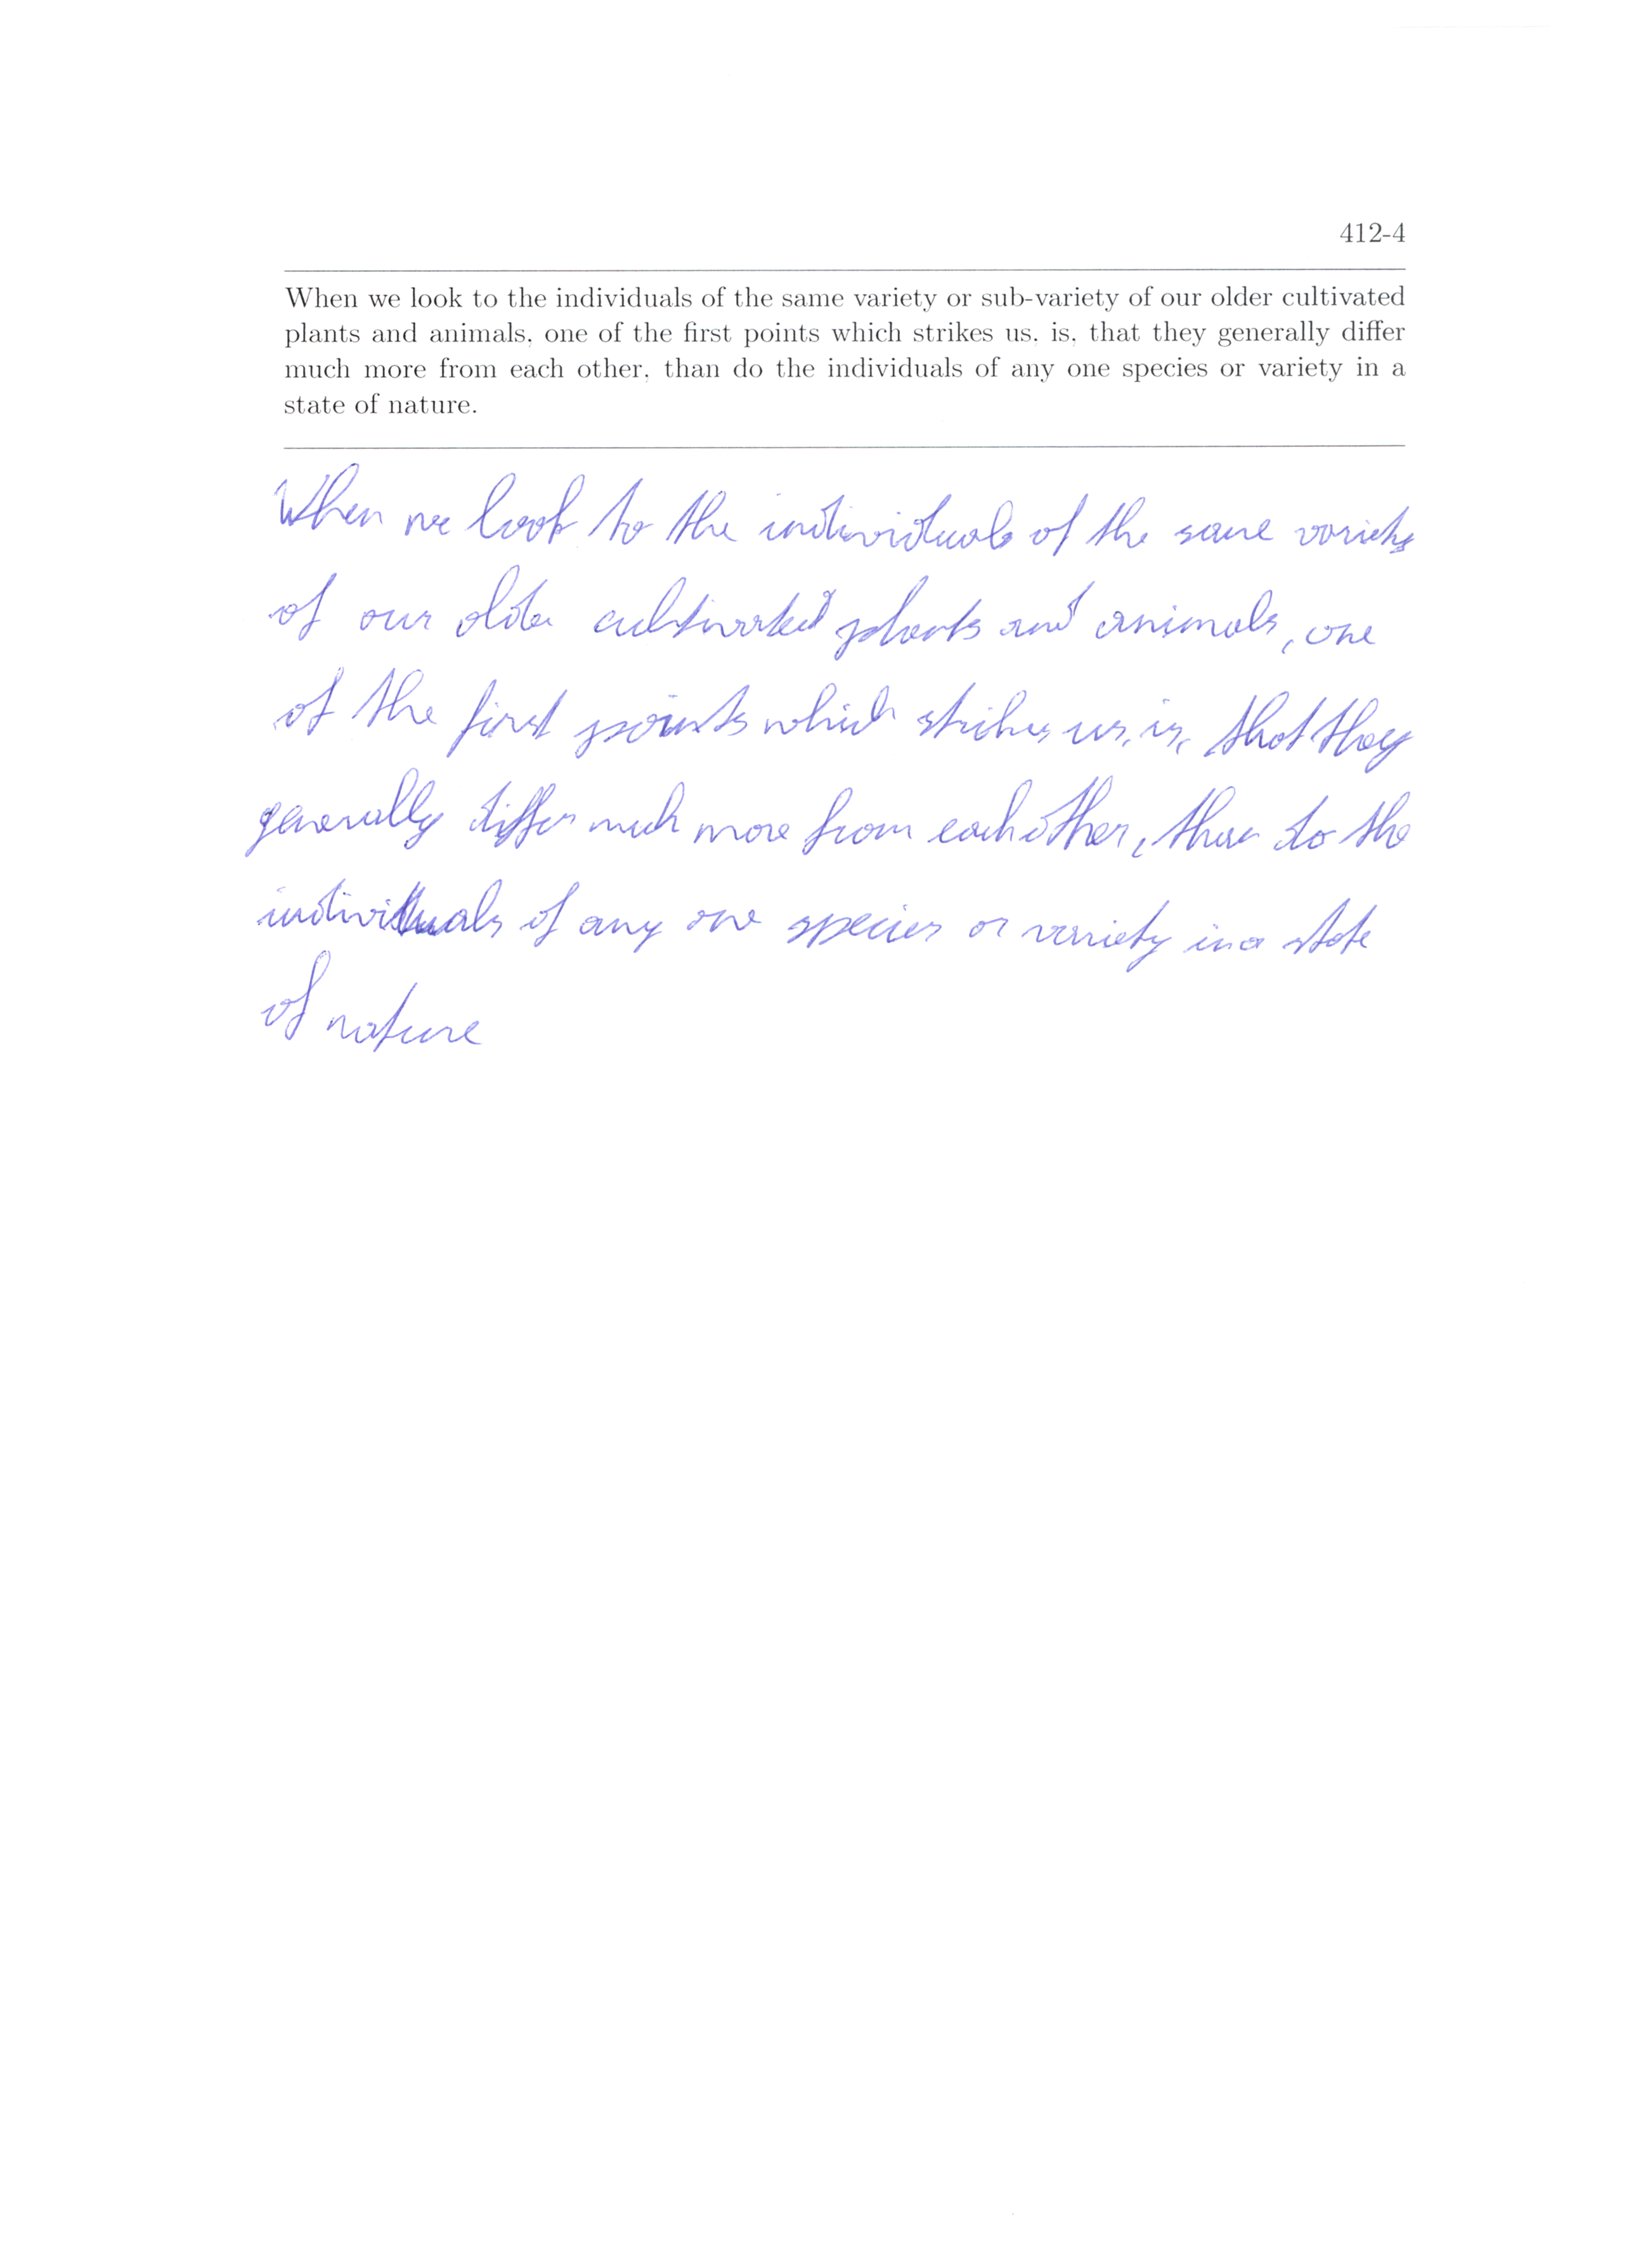 412-4
When we look to the individuals of the same variety or sub-variety of our older cultivated
plants and animals, one of the first points which strikes us, is, that they generally differ
much more from each other, than do the individuals of any one species or variety in a
state of nature.
When we look to the individuals of the same variety
of our older cultivated plants and animals, one
of the first points which strikes us, is, that they
generally differ much more from each other, than do the
individuals of any one species or variety in a state
of nature